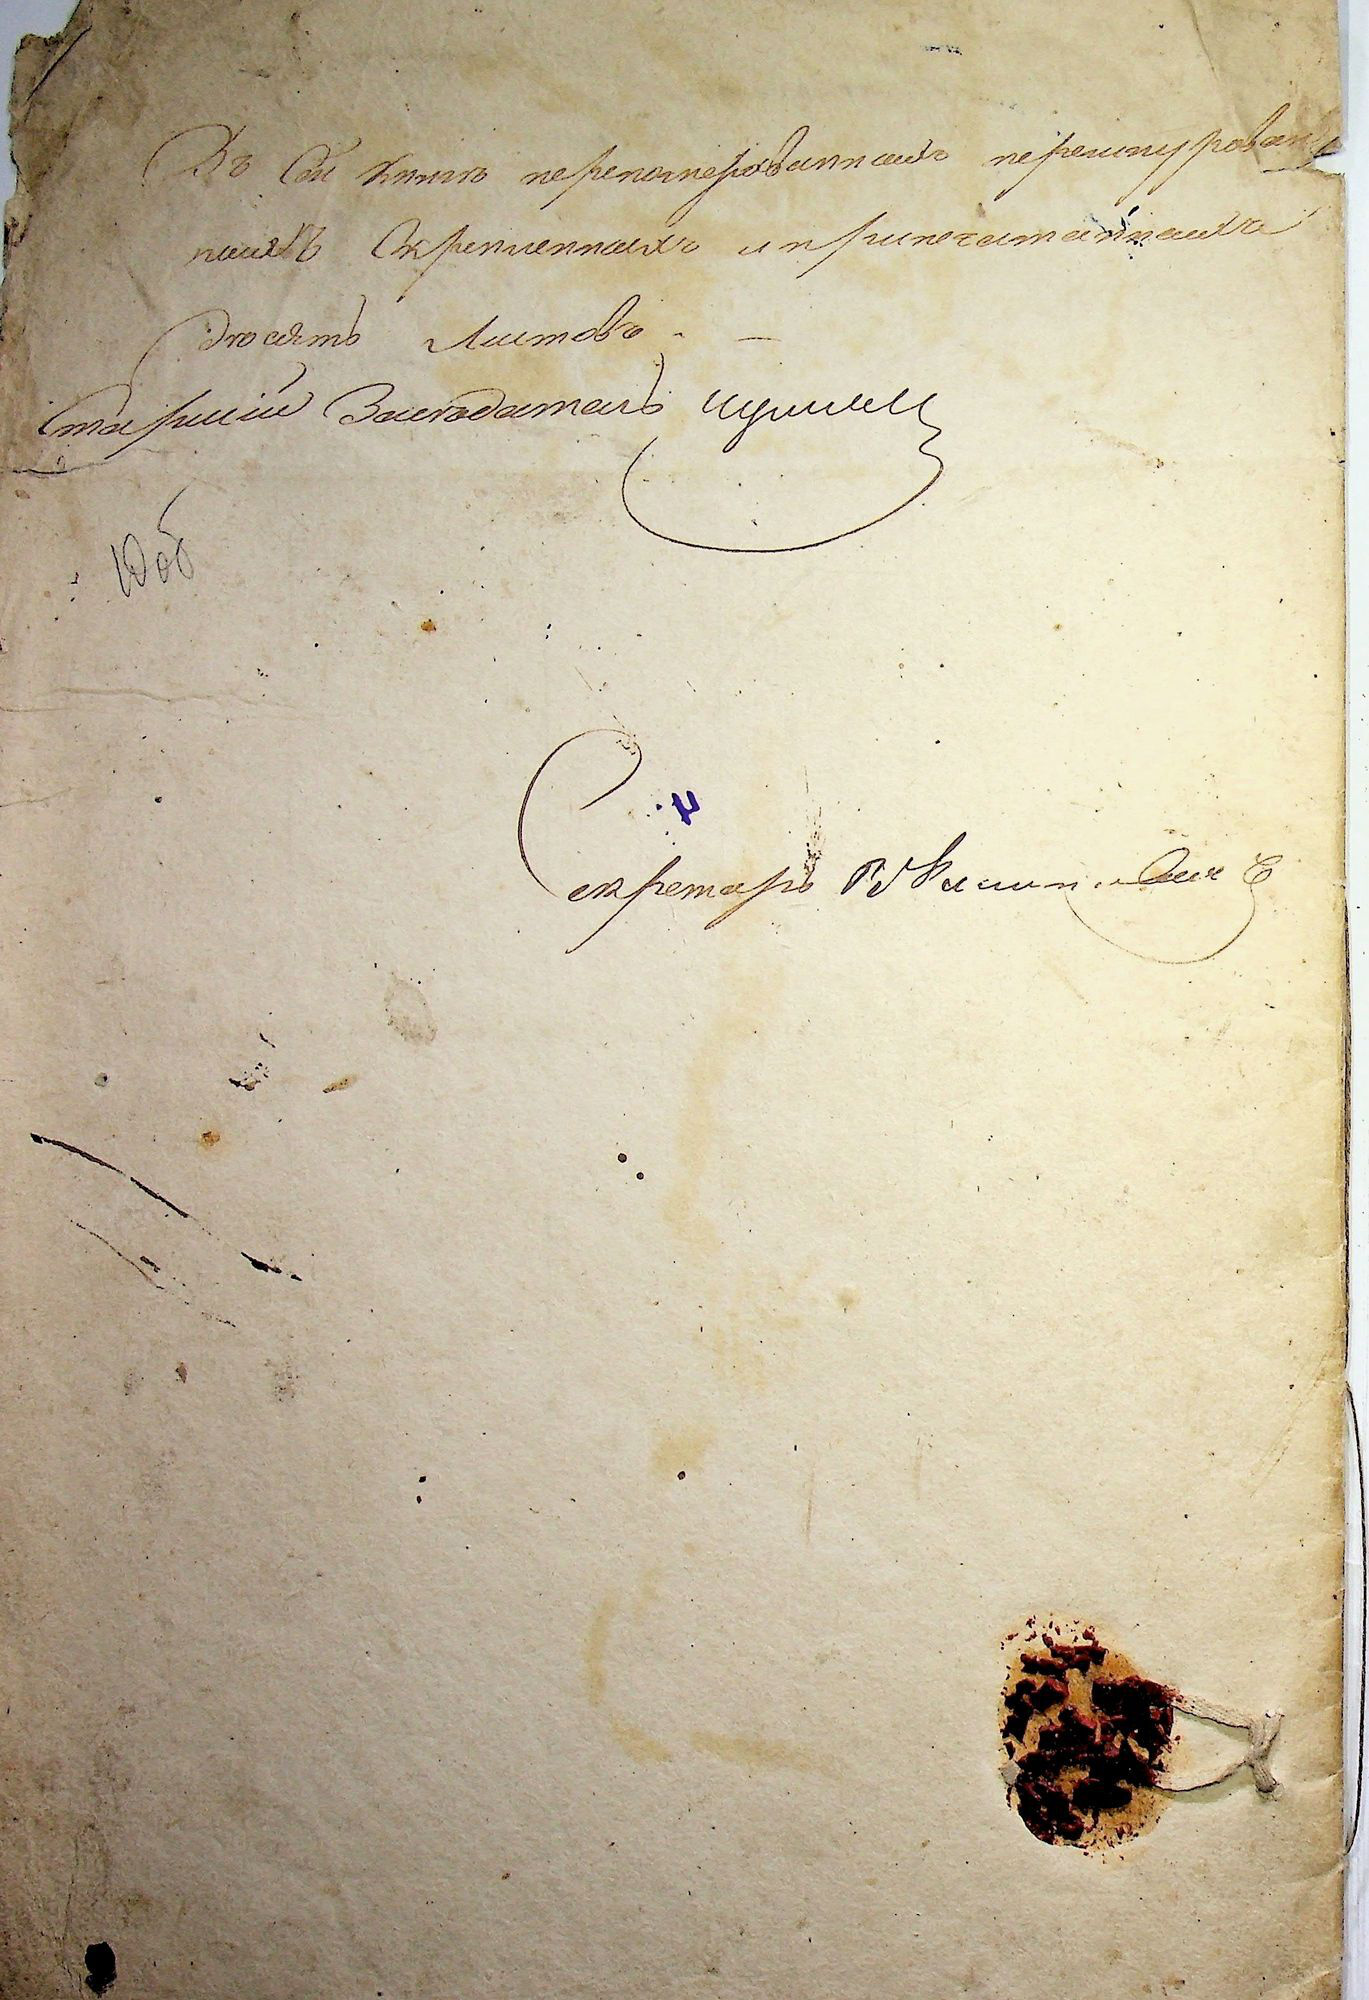 Въ сей книгѣ переномерованныхъ перешнурован
ныхъ скрепленныхъ и припечатанныхъ
десять листовъ. —
Старшій Заседатель
10 об
Секретарь